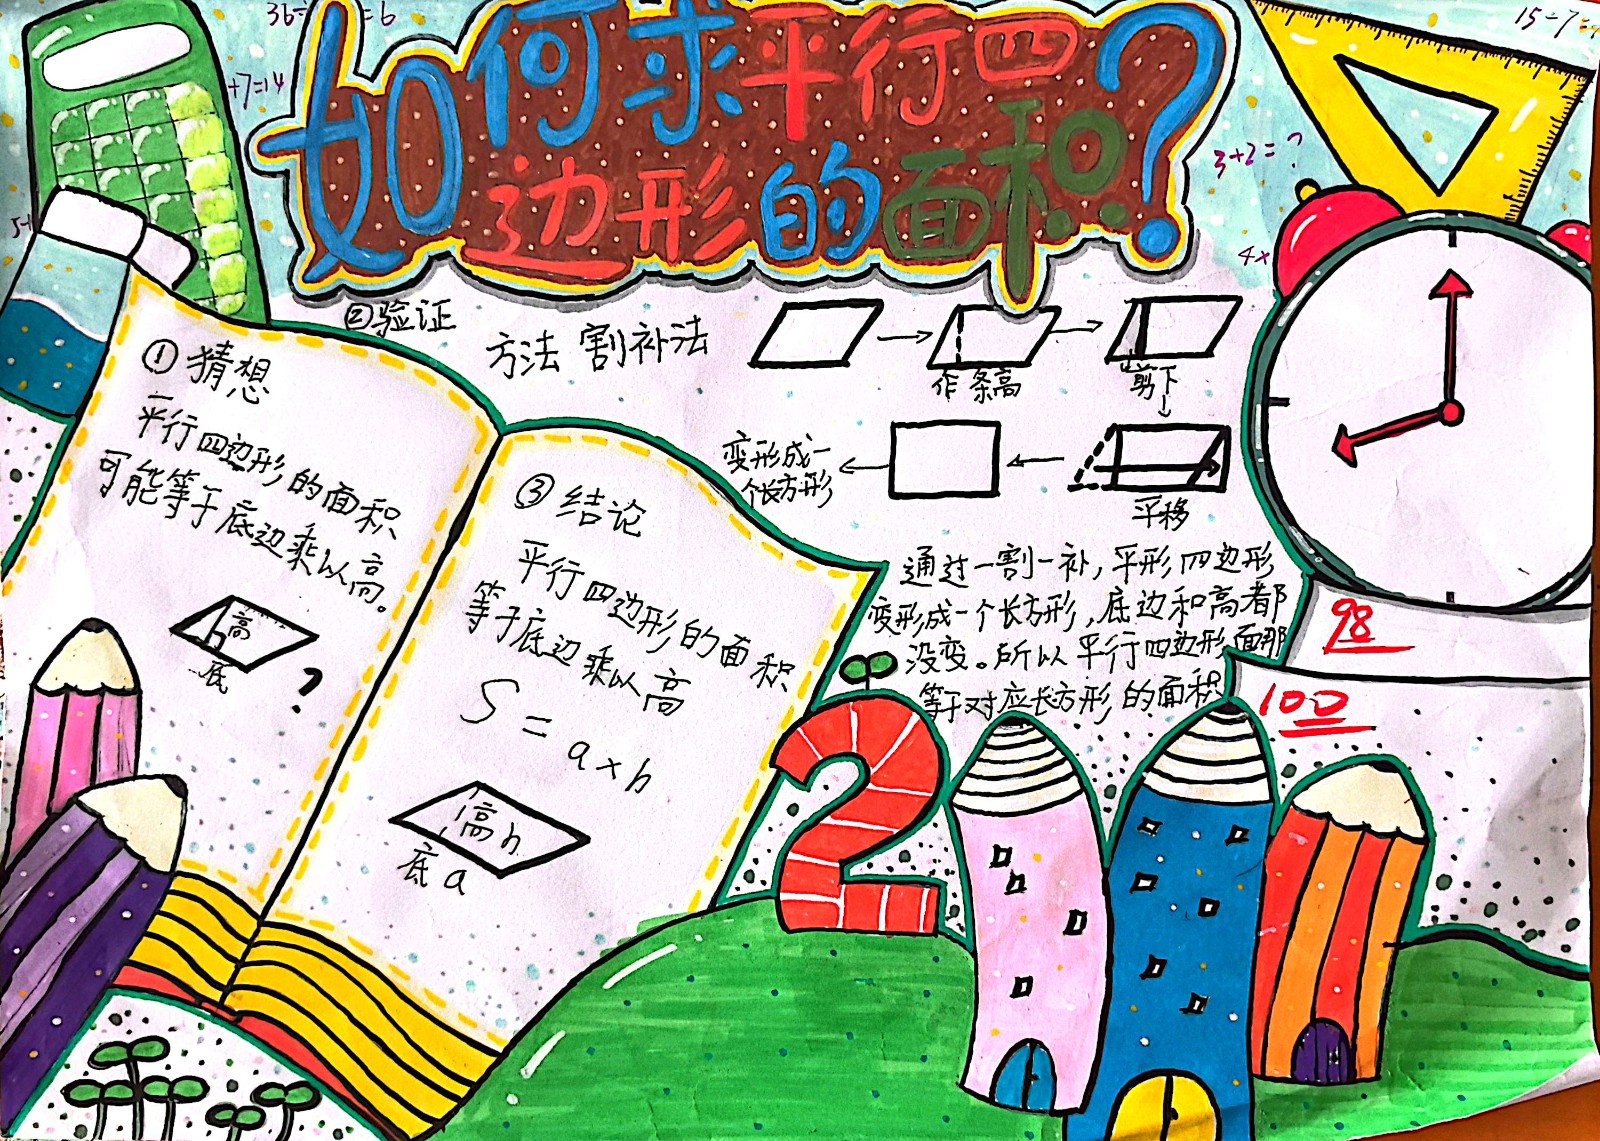 36÷ =6
15-7=
+7=14
如何求平行四
边形的面积？
3+2=?
4×
5-
②验证
方法 割补法
作条高
剪下
平移
变形成一
个长方形
①猜想
平行四边形的面积
可能等于底边乘以高。
高
h
底
?
③结论
平行四边形的面积
等于底边乘以高
S=a×h
高h
底a
通过一割一补，平形四边形
变形成一个长方形，底边和高都
没变。所以平行四边形面那
等于对应长方形的面积
98
100
2